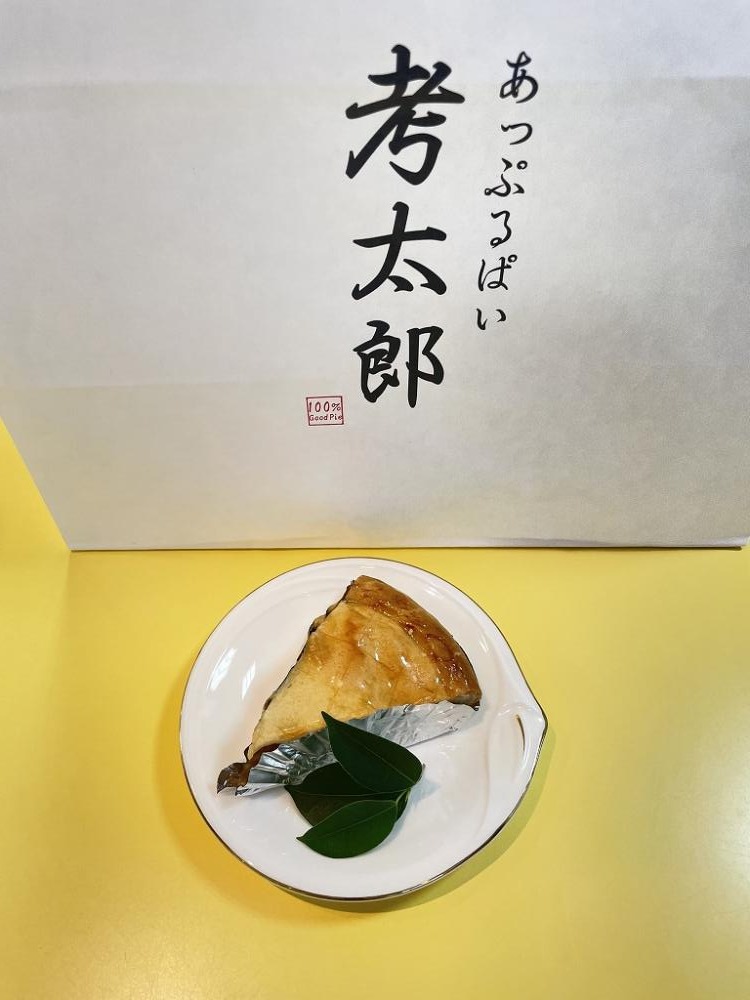 あっぷるぱい
考太郎
100%
Good Pie